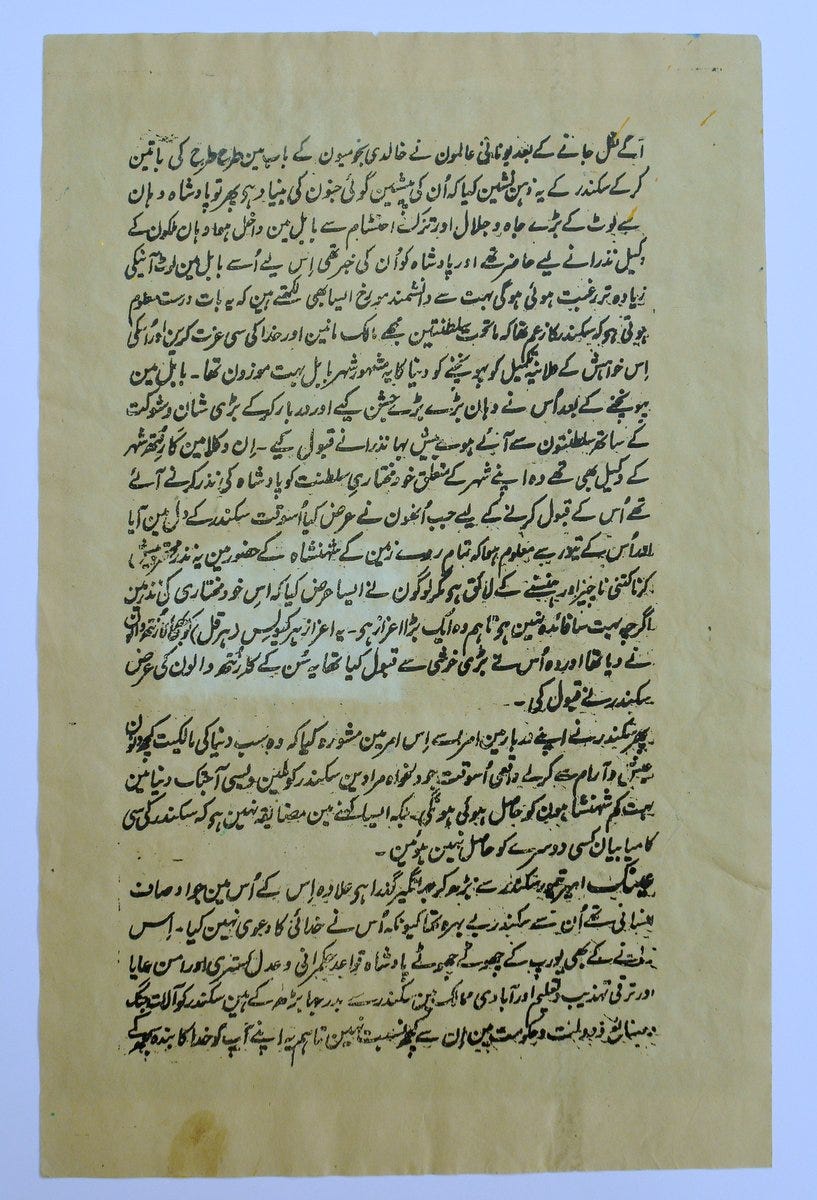 آگے نکل جانے کے بعد یونانی عالمون نے خالدی نجومیون کے باب مین طرح طرح کی باتین
کر کے سکندر کے یہ ذہن نشین کیا کہ اُن کی پیشین گوئی جنون کی بنیاد ہی پھر تو پادشاہ وہان
سے لوٹ کے بڑے جاہ و جلال اور تزک احتشام سے بابل مین داخل ہوا وہان ملکون کے
وکیل نذرانے لیے حاضر تھے اور پادشاہ کو اُن کی خبر تھی اِس لیے اُسے بابل مین لوٹ آنیکی
زیادہ تر رغبت ہوئی ہوگی بہت سے دانشمند مورخ ایسا بھی لکھتے ہین کہ یہ بات درست معلوم
ہوتی ہو کہ سکندر کا زعم تھا کہ ماتحت سلطنتین مجھے مالک مانین اور خدا کی سی عزت کرین اور اُسکی
اِس خواہش کے علانیہ تکمیل کو پہونچنے کو دنیا کا یہ مشہور شہر بابل بہت موزون تھا۔ بابل مین
پہونچنے کے بعد اُس نے وہان بڑے بڑے جشن کیے اور دربار کر کے بڑی شان و شوکت
کے ساتھ سلطنتون سے آئے ہوے بیش بہا نذرانے قبول کیے ۔ اِن وکلا مین کارنتھ شہر
کے وکیل بھی تھے وہ اپنے شہر کے متعلق خود مختاری سلطنت کو پادشاہ کی نذر کرنے آئے
تھے اُس کے قبول کرنے کے لیے جب اُنھون نے عرض کیا اُسوقت سکندر کے دل مین آیا
اور اُس کے تیور سے معلوم ہوا کہ تمام روے زمین کے شہنشاہ کے حضور مین یہ نذر پیش
کرنا کتنی ناچیز اور ہنسنے کے لائق ہو مگر لوگون نے ایسا عرض کیا کہ اِس خود مختاری کی نذر مین
اگرچہ بہت سا فائدہ نہین ہو تاہم وہ ایک بڑا اعزاز ہو ۔ یہ اعزاز ہرکیولیس (ہرقل) کو بھی کارنتھ والون
نے دیا تھا اور وہ اُس نے بڑی خوشی سے قبول کیا تھا یہ سُن کے کارنتھ والون کی عرض
سکندر نے قبول کی ۔
پھر سکندر نے اپنے دربار مین امرا سے اِس امر مین مشورہ کیا کہ وہ سب دنیا کی مالکیت کچھ دنون
عیش و آرام سے کرلے واقعی اُسوقت جو دلخواہ مرادین سکندر کو ملین ویسی آجتک دنیا مین
بہت کم شہنشاہون کو حاصل ہوئی ہونگی بلکہ ایسا کہنے مین مضایقہ نہین ہو کہ سکندر کی سی
کامیابیان کسی دوسرے کو حاصل نہین ہوئین ۔
بیشک امیر تیمور سکندر سے بڑھ کر جہانگیر گذرا ہی علاوہ اِس کے اُس مین جو اوصاف
انسانی تھے اُن سے سکندر بے بہرہ تھا کیونکہ اُس نے خدائی کا دعوی نہین کیا ۔ اِس
زمانے کے بھی یورپ کے چھوٹے چھوٹے پادشاہ قواعد حکمرانی و عدل گستری اور امن رعایا
اور ترقی تہذیب و تعلیم اور آبادی ممالک مین سکندر سے بدرجہا بڑھ کے ہین سکندر کو آلات جنگ
و دولت و حکومت مین اِن سے کچھ نسبت نہین تاہم یہ اپنے آپ کو خدا کا بندہ